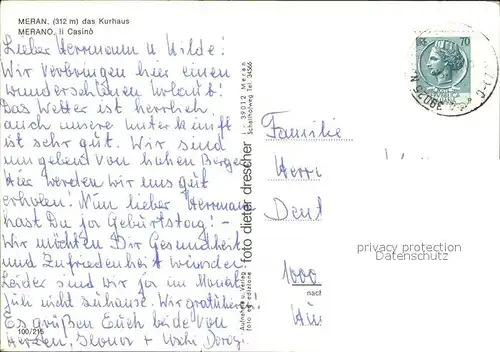 MERAN, (312 m) das Kurhaus
MERANO, Il Casinò
Lieber Herrmann u Hilde!
Wir verbringen hier einen
wunderschönen Urlaub!
Das Wetter ist herrlich
auch unsere Unterkunft
ist sehr gut. Wir sind
umgeben von hohen Bergen
Hier werden wir uns gut
erholen! Nun lieber Herrmann
hast Du ja Geburtstag! –
Wir möchten Dir Gesundheit
und Zufriedenheit wünschen
Leider sind wir ja im Monat
Juli nicht zuhause. Wir gratulieren!
Es grüßen Euch beide von
Herzen, + Uschi
100/215
Aufnahme u. Verlag
foto ed edizione
foto dieter drescher
I - 39012 Meran
Schafferweg Tel. 34566
70
39025
Familie
Herr
Deut
1000
nach
privacy protection
Datenschutz